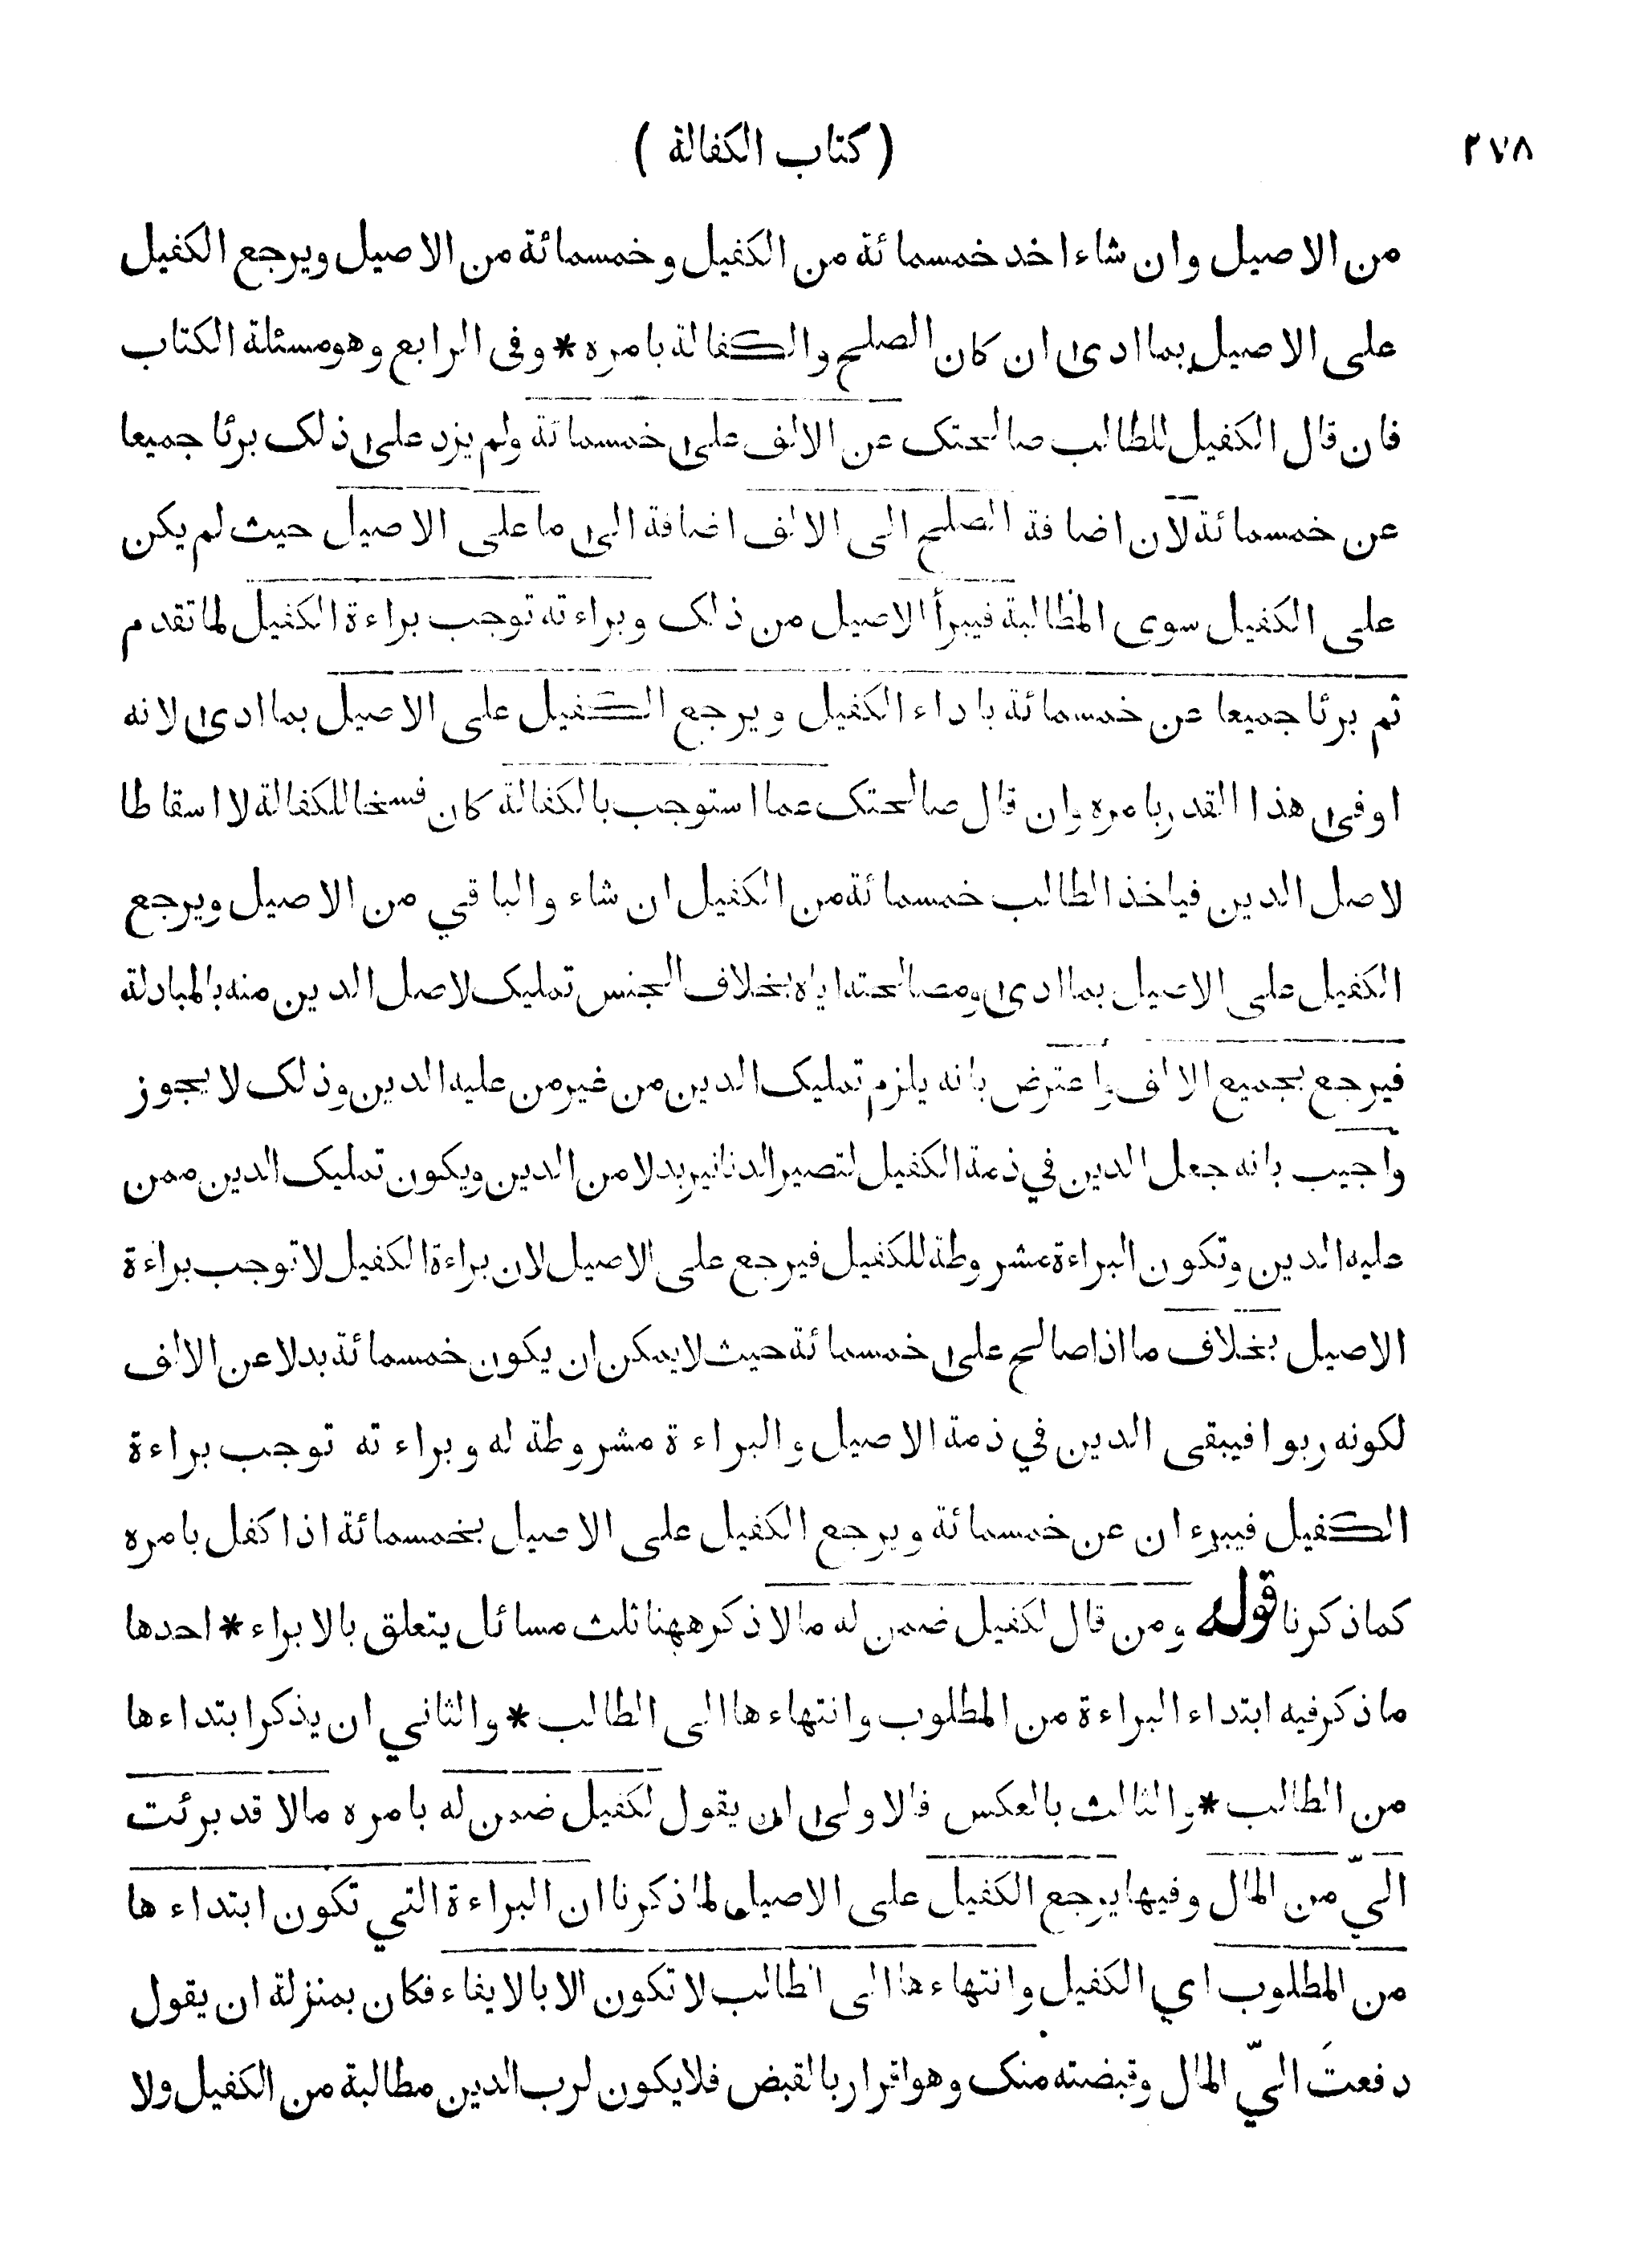 ٢٧٨
( كتاب الكفالة )
من الاصيل وان شاء اخد خمسمائة من الكفيل وخمسمائة من الاصيل ويرجع الكفيل
على الاصيل بما ادى ان كان الصلح والكفالة بامره * وفى الرابع وهومسئلة الكتاب
فان قال الكفيل للطالب صالحتك عن الالف على خمسمائة ولم يزد على ذلك برئا جميعا
عن خمسمائة لان اضافة الصلح الى الالف اضافة الى ما على الاصيل حيث لم يكن
على الكفيل سوى المطالبة فيبرأ الاصيل من ذلك وبراءته توجب براءة الكفيل لما تقدم
ثم برئا جميعا عن خمسمائة باداء الكفيل ويرجع الكفيل على الاصيل بما ادى لانه
اوفى هذا القدر بامره وان قال صالحتك عما استوجب بالكفالة كان فسخا للكفالة لا اسقاطا
لاصل الدين فياخذ الطالب خمسمائة من الكفيل ان شاء والباقي من الاصيل ويرجع
الكفيل على الاصيل بما ادى ومصالحته اياه بخلاف الجنس تمليك لاصل الدين منه بالمبادلة
فيرجع بجميع الالف واعترض بانه يلزم تمليك الدين من غير من عليه الدين وذلك لا يجوز
واجيب بانه جعل الدين في ذمة الكفيل لتصير الدنانير بدلا من الدين ويكون تمليك الدين ممن
عليه الدين وتكون البراءة مشروطة للكفيل فيرجع على الاصيل لان براءة الكفيل لا توجب براءة
الاصيل بخلاف ما اذا صالح على خمسمائة حيث لا يمكن ان يكون خمسمائة بدلا عن الالف
لكونه ربوا فيبقى الدين في ذمة الاصيل والبراءة مشروطة له وبراءته توجب براءة
الكفيل فيبرءان عن خمسمائة ويرجع الكفيل على الاصيل بخمسمائة اذا كفل بامره
كما ذكرنا قوله ومن قال لكفيل ضمن له مالا ذكر ههنا ثلث مسائل يتعلق بالابراء * احدها
ما ذكر فيه ابتداء البراءة من المطلوب وانتهاءها الى الطالب * والثاني ان يذكر ابتداءها
من الطالب * والثالث بالعكس فالاولى ان يقول لكفيل ضمن له بامره مالا قد برئت
اليّ من المال وفيها يرجع الكفيل على الاصيل لما ذكرنا ان البراءة التي تكون ابتداءها
من المطلوب اي الكفيل وانتهاءها الى الطالب لا تكون الا بالايفاء فكان بمنزلة ان يقول
دفعتَ اليّ المال وقبضته منك وهو اقرار بالقبض فلا يكون لرب الدين مطالبة من الكفيل ولا